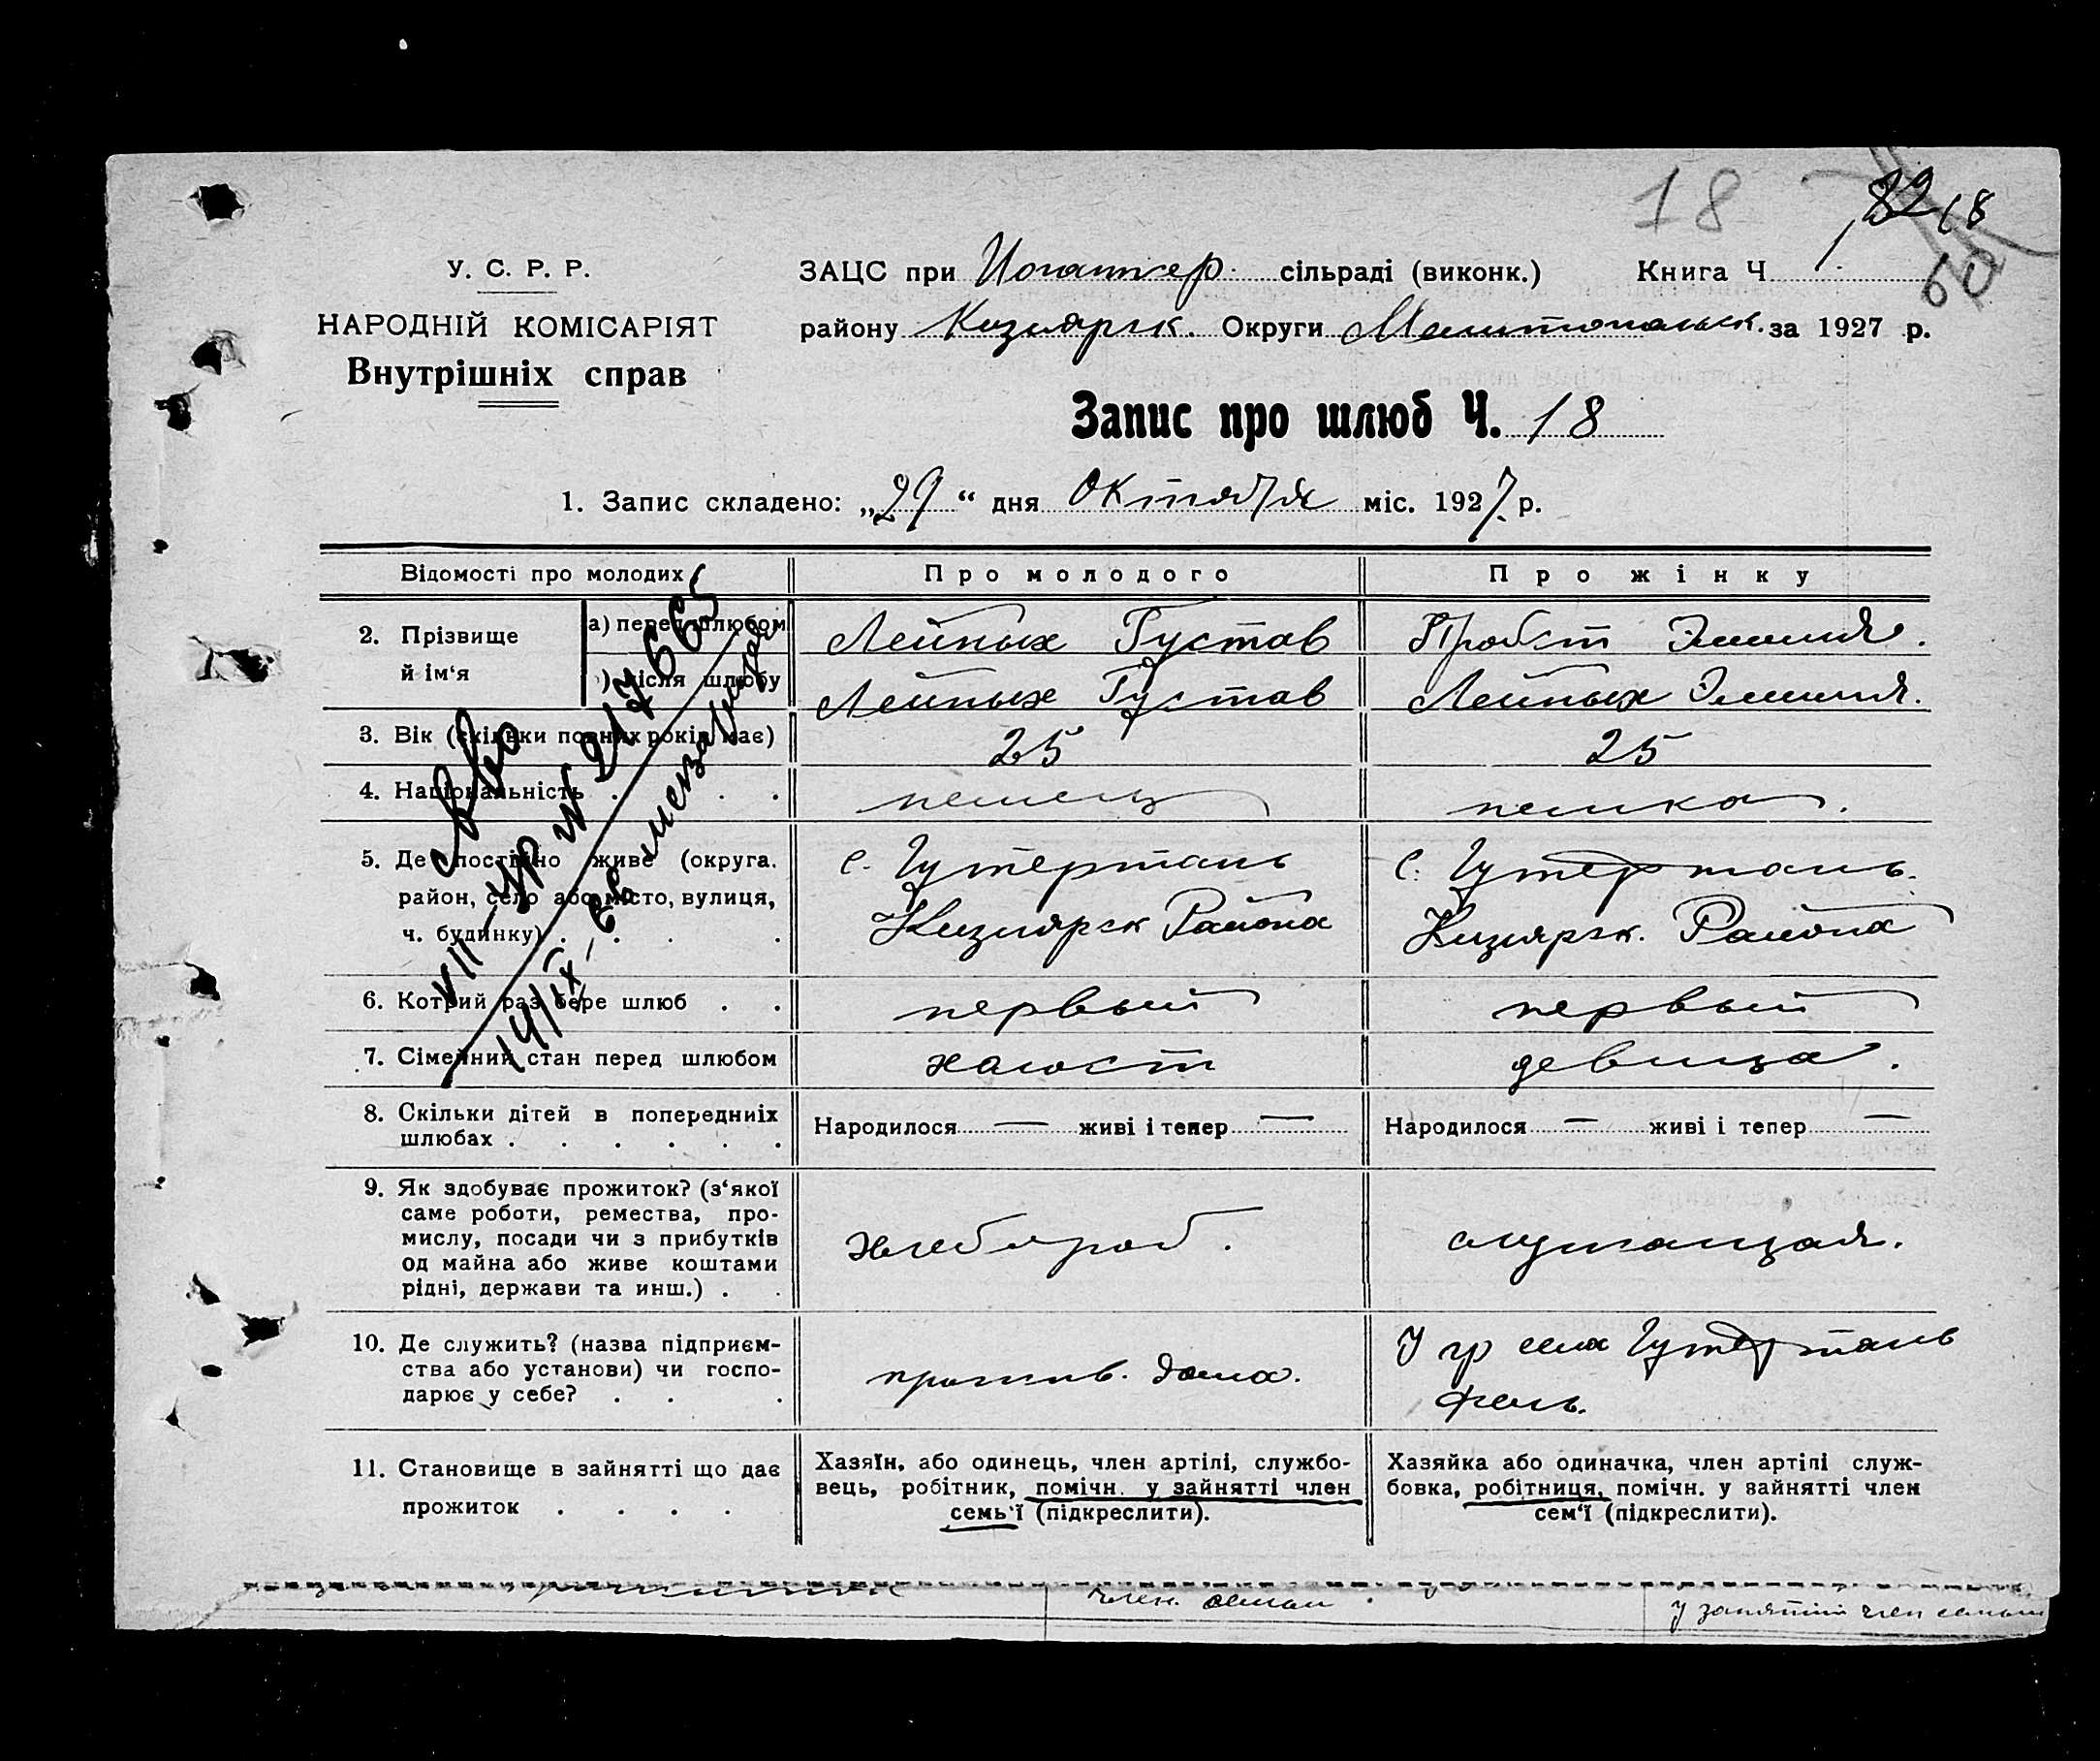 18
82 18
60
У. С. Р. Р.
НАРОДНІЙ КОМІСАРІЯТ
Внутрішніх справ
ЗАЦС при сільраді (виконк.) Книга Ч 1
району Кизиярск. Округи Мелитопольск. за 1927 р.
Запис про шлюб Ч. 18
1. Запис складено: „29“ дня Октября міс. 1927 р.
Відомості про молодих
Про молодого
Про жінку
2. Прізвище й ім‘я
а) перед шлюбом
Лейных Густав
Пробст Эмилия.
) після шлюбу
Лейных Густав
Лейных Эмилия.
3. Вік (скільки повних років має)
25
25
4. Національність . . .
немец
немка.
5. Де постійно живе (округа.
район, село або місто, вулиця,
ч. будинку) . . . .
с. Гутерталь
Кизиярск Района
с. Гутерталь.
Кизиярск. Района
6. Котрий раз бере шлюб . .
первый
первый
7. Сімейний стан перед шлюбом
холост
девица.
8. Скільки дітей в попередниіх
шлюбах . . . . . .
Народилося — живі і тепер —
Народилося — живі і тепер —
9. Як здобуває прожиток? (з‘якої
саме роботи, ремества, про-
мислу, посади чи з прибутків
од майна або живе коштами
рідні, держави та инш.) . .
хлебороб.
служащая.
10. Де служить? (назва підприєм-
ства або установи) чи госпо-
дарює у себе? . . .
прожив. дома.
У гр села Гутерталь
11. Становище в зайнятті що дає
прожиток . . . .
Хазяїн, або одинець, член артілі, службо-
вець, робітник, помічн. у зайнятті член
семь‘ї (підкреслити).
Хазяйка або одиначка, член артілі служ-
бовка, робітниця, помічн. у зайнятті член
сем‘ї (підкреслити).
VII-УР № 217665
14/IX-
член. семьи
У занятии член семьи